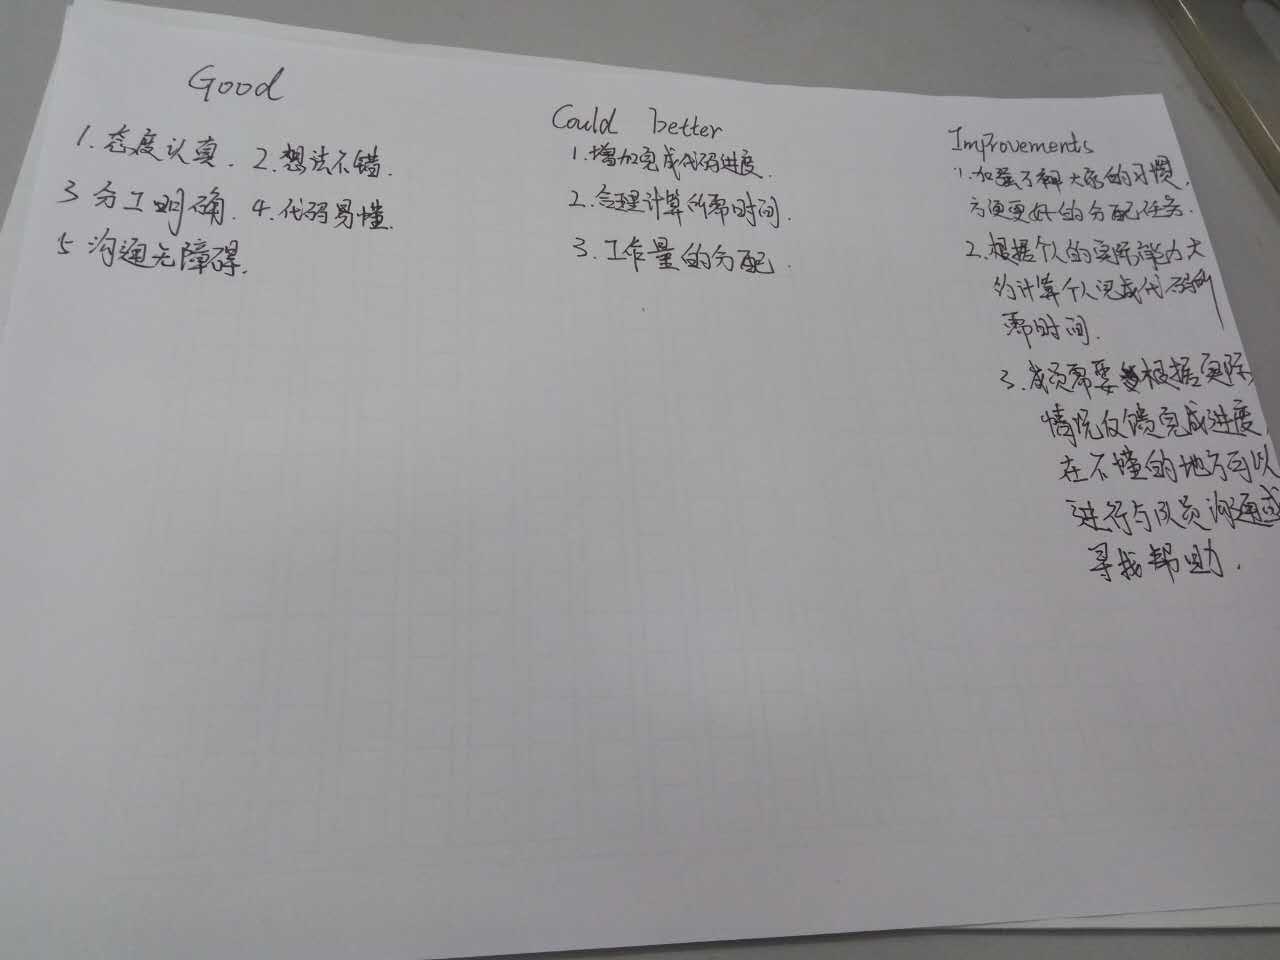 Good
1.态度认真. 2.想法不错.
3 分工明确. 4.代码易懂.
5 沟通无障碍.
Could better
1.增加完成代码进度.
2.合理计算所需时间.
3.工作量的分配.
Improvements
1.加强了解大家的习惯,
方便更好的分配任务.
2.根据个人的实际能力大
约计算个人完成代码所
需时间.
3.成员需要根据实际
情况反馈完成进度,
在不懂的地方可以
进行与队员沟通或
寻找帮助.